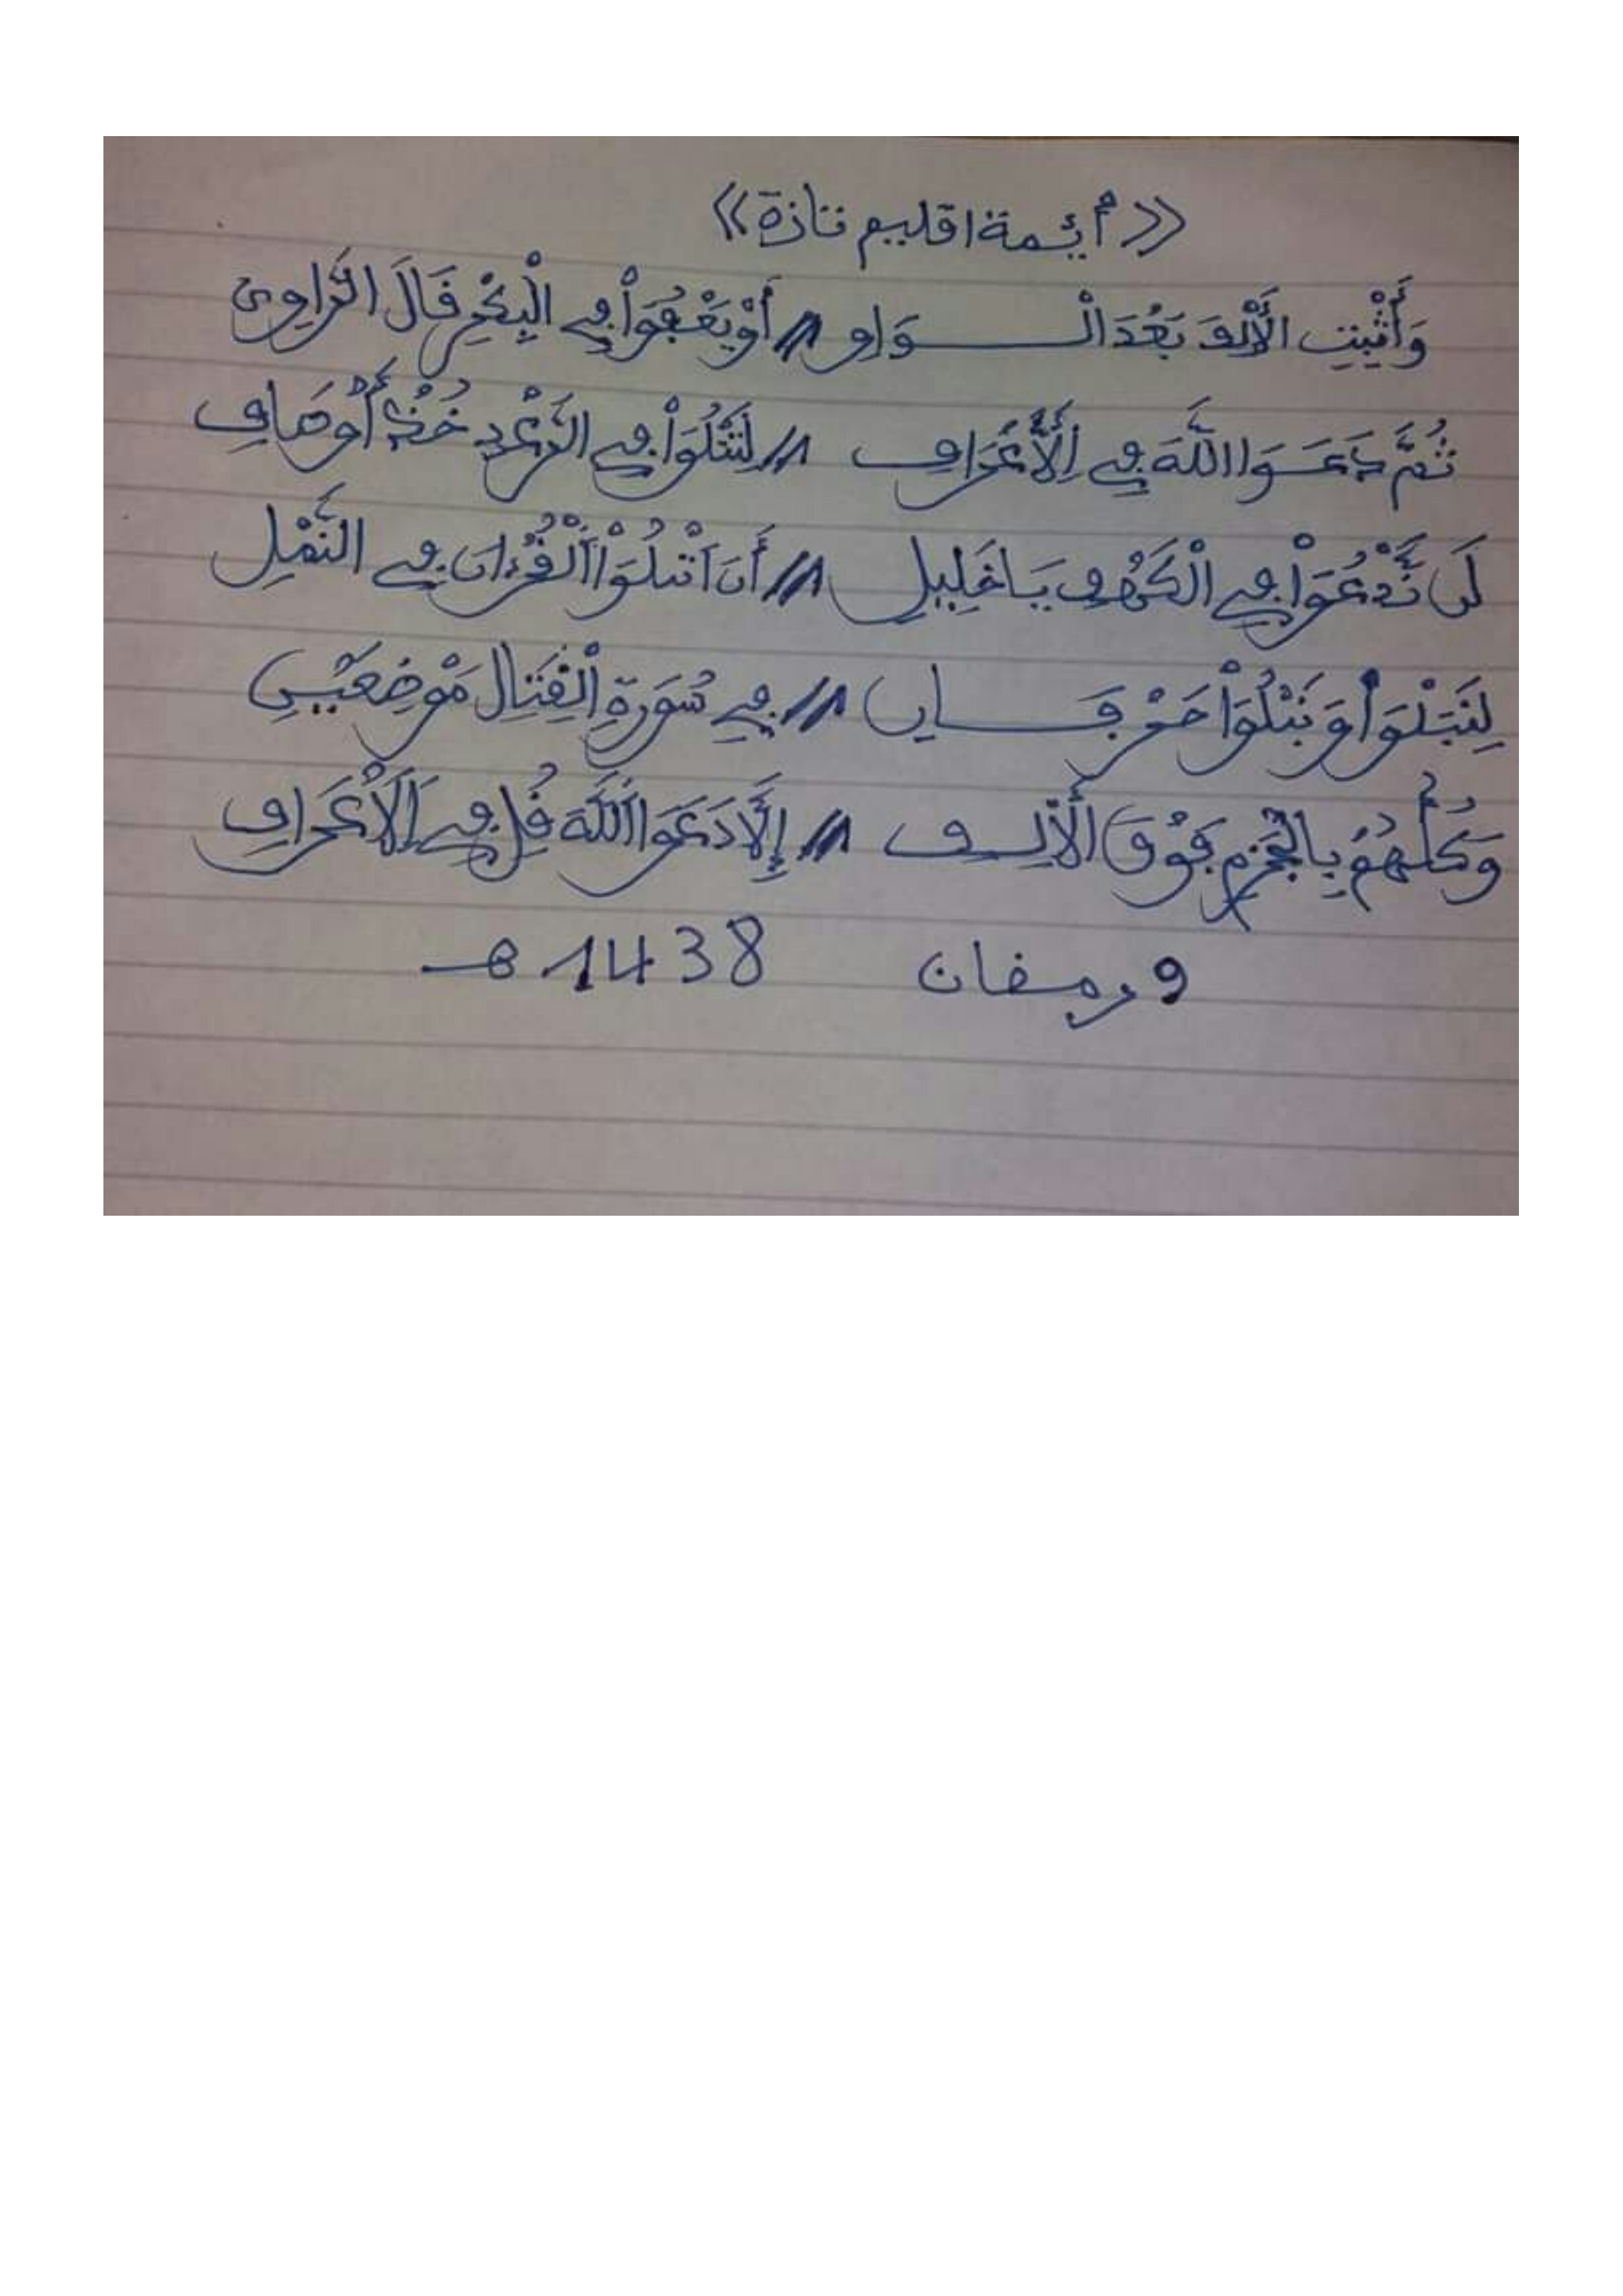 << أئمة اقليم تازة >>
وَأَثْبِتِ الْأَلِفَ بَعْدَ الْـوَاوِ // أَوْ يَعْفُوَاْ فِے الْبِكْرِ قَالَ الرَّاوِي
ثُمَّ دَعَـوَا اللَّهَ فِے اِلْأَعْرَافِ // لِتَتْلُوَاْ فِے الرَّعْدِ خُذْ أَوْصَافِ
لَن نَّدْعُوَاْ فِے الْكَهْفِ يَا خَلِيلِ // أَنَ اَتْلُوَاْ اَلْقُرْءَانَ فِے النَّمْلِ
لِيَبْلُوَاْ وَنَبْلُوَاْ حَرْفَـانِ // فِے سُورَةِ الْقِتَالِ مَوْضِعَيْنِ
وَكُلُّهُمْ بِالْجَزْمِ فَوْقَ الْأَلِـفِ // إِلَّا دَعَوَا اَللَّهَ قُلْ فِے اَلْأَعْرَافِ
9 رمضان 1438 هـ